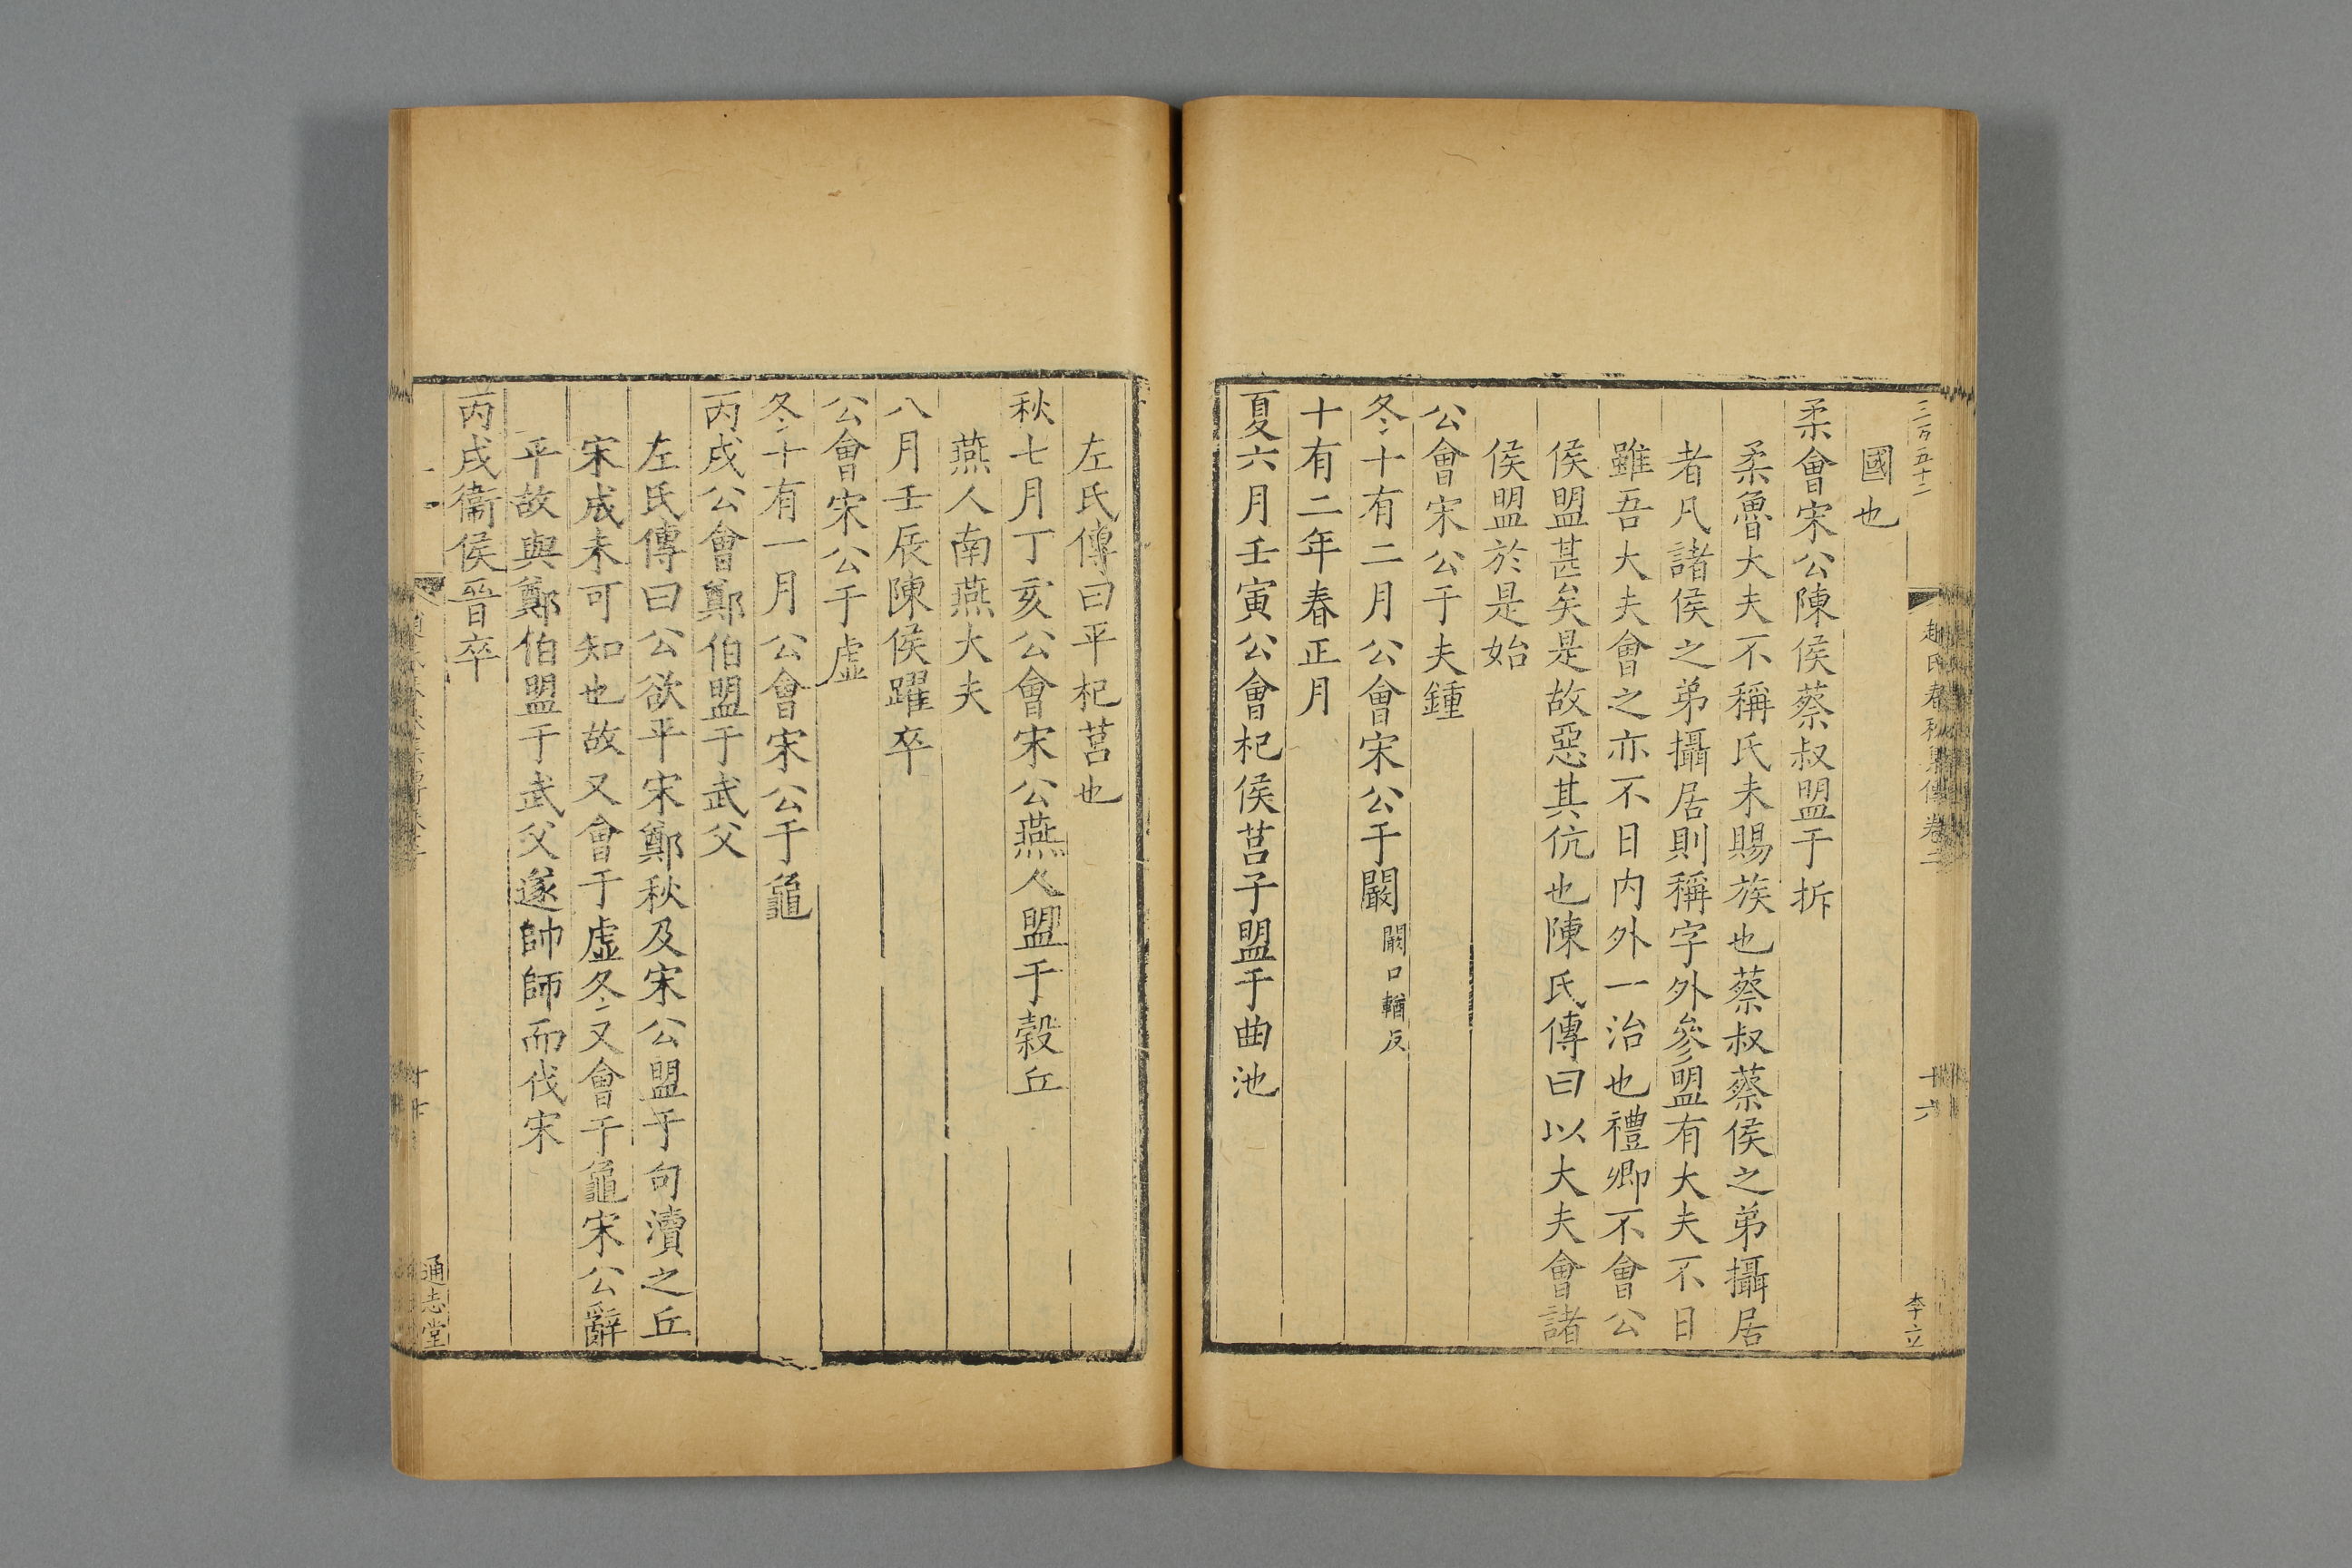 三百五十二
趙氏春秋集傳卷二
十六
李立
國也
柔會宋公陳侯蔡叔盟于折
柔魯大夫不稱氏未賜族也蔡叔蔡侯之弟攝居
者凡諸侯之弟攝居則稱字外參盟有大夫不日
雖吾大夫會之亦不日内外一治也禮卿不會公
侯盟甚矣是故惡其伉也陳氏傳曰以大夫會諸
侯盟於是始
公會宋公于夫鍾
冬十有二月公會宋公于闞闞口輶反
十有二年春正月
夏六月壬寅公會杞侯莒子盟于曲池
左氏傳曰平杞莒也
秋七月丁亥公會宋公燕人盟于穀丘
燕人南燕大夫
八月壬辰陳侯躍卒
公會宋公于虛
冬十有一月公會宋公于龜
丙戌公會鄭伯盟于武父
左氏傳曰公欲平宋鄭秋及宋公盟于句瀆之丘
宋成未可知也故又會于虛冬又會于龜宋公辭
平故與鄭伯盟于武父遂帥師而伐宋
丙戌衞侯晉卒
通志堂